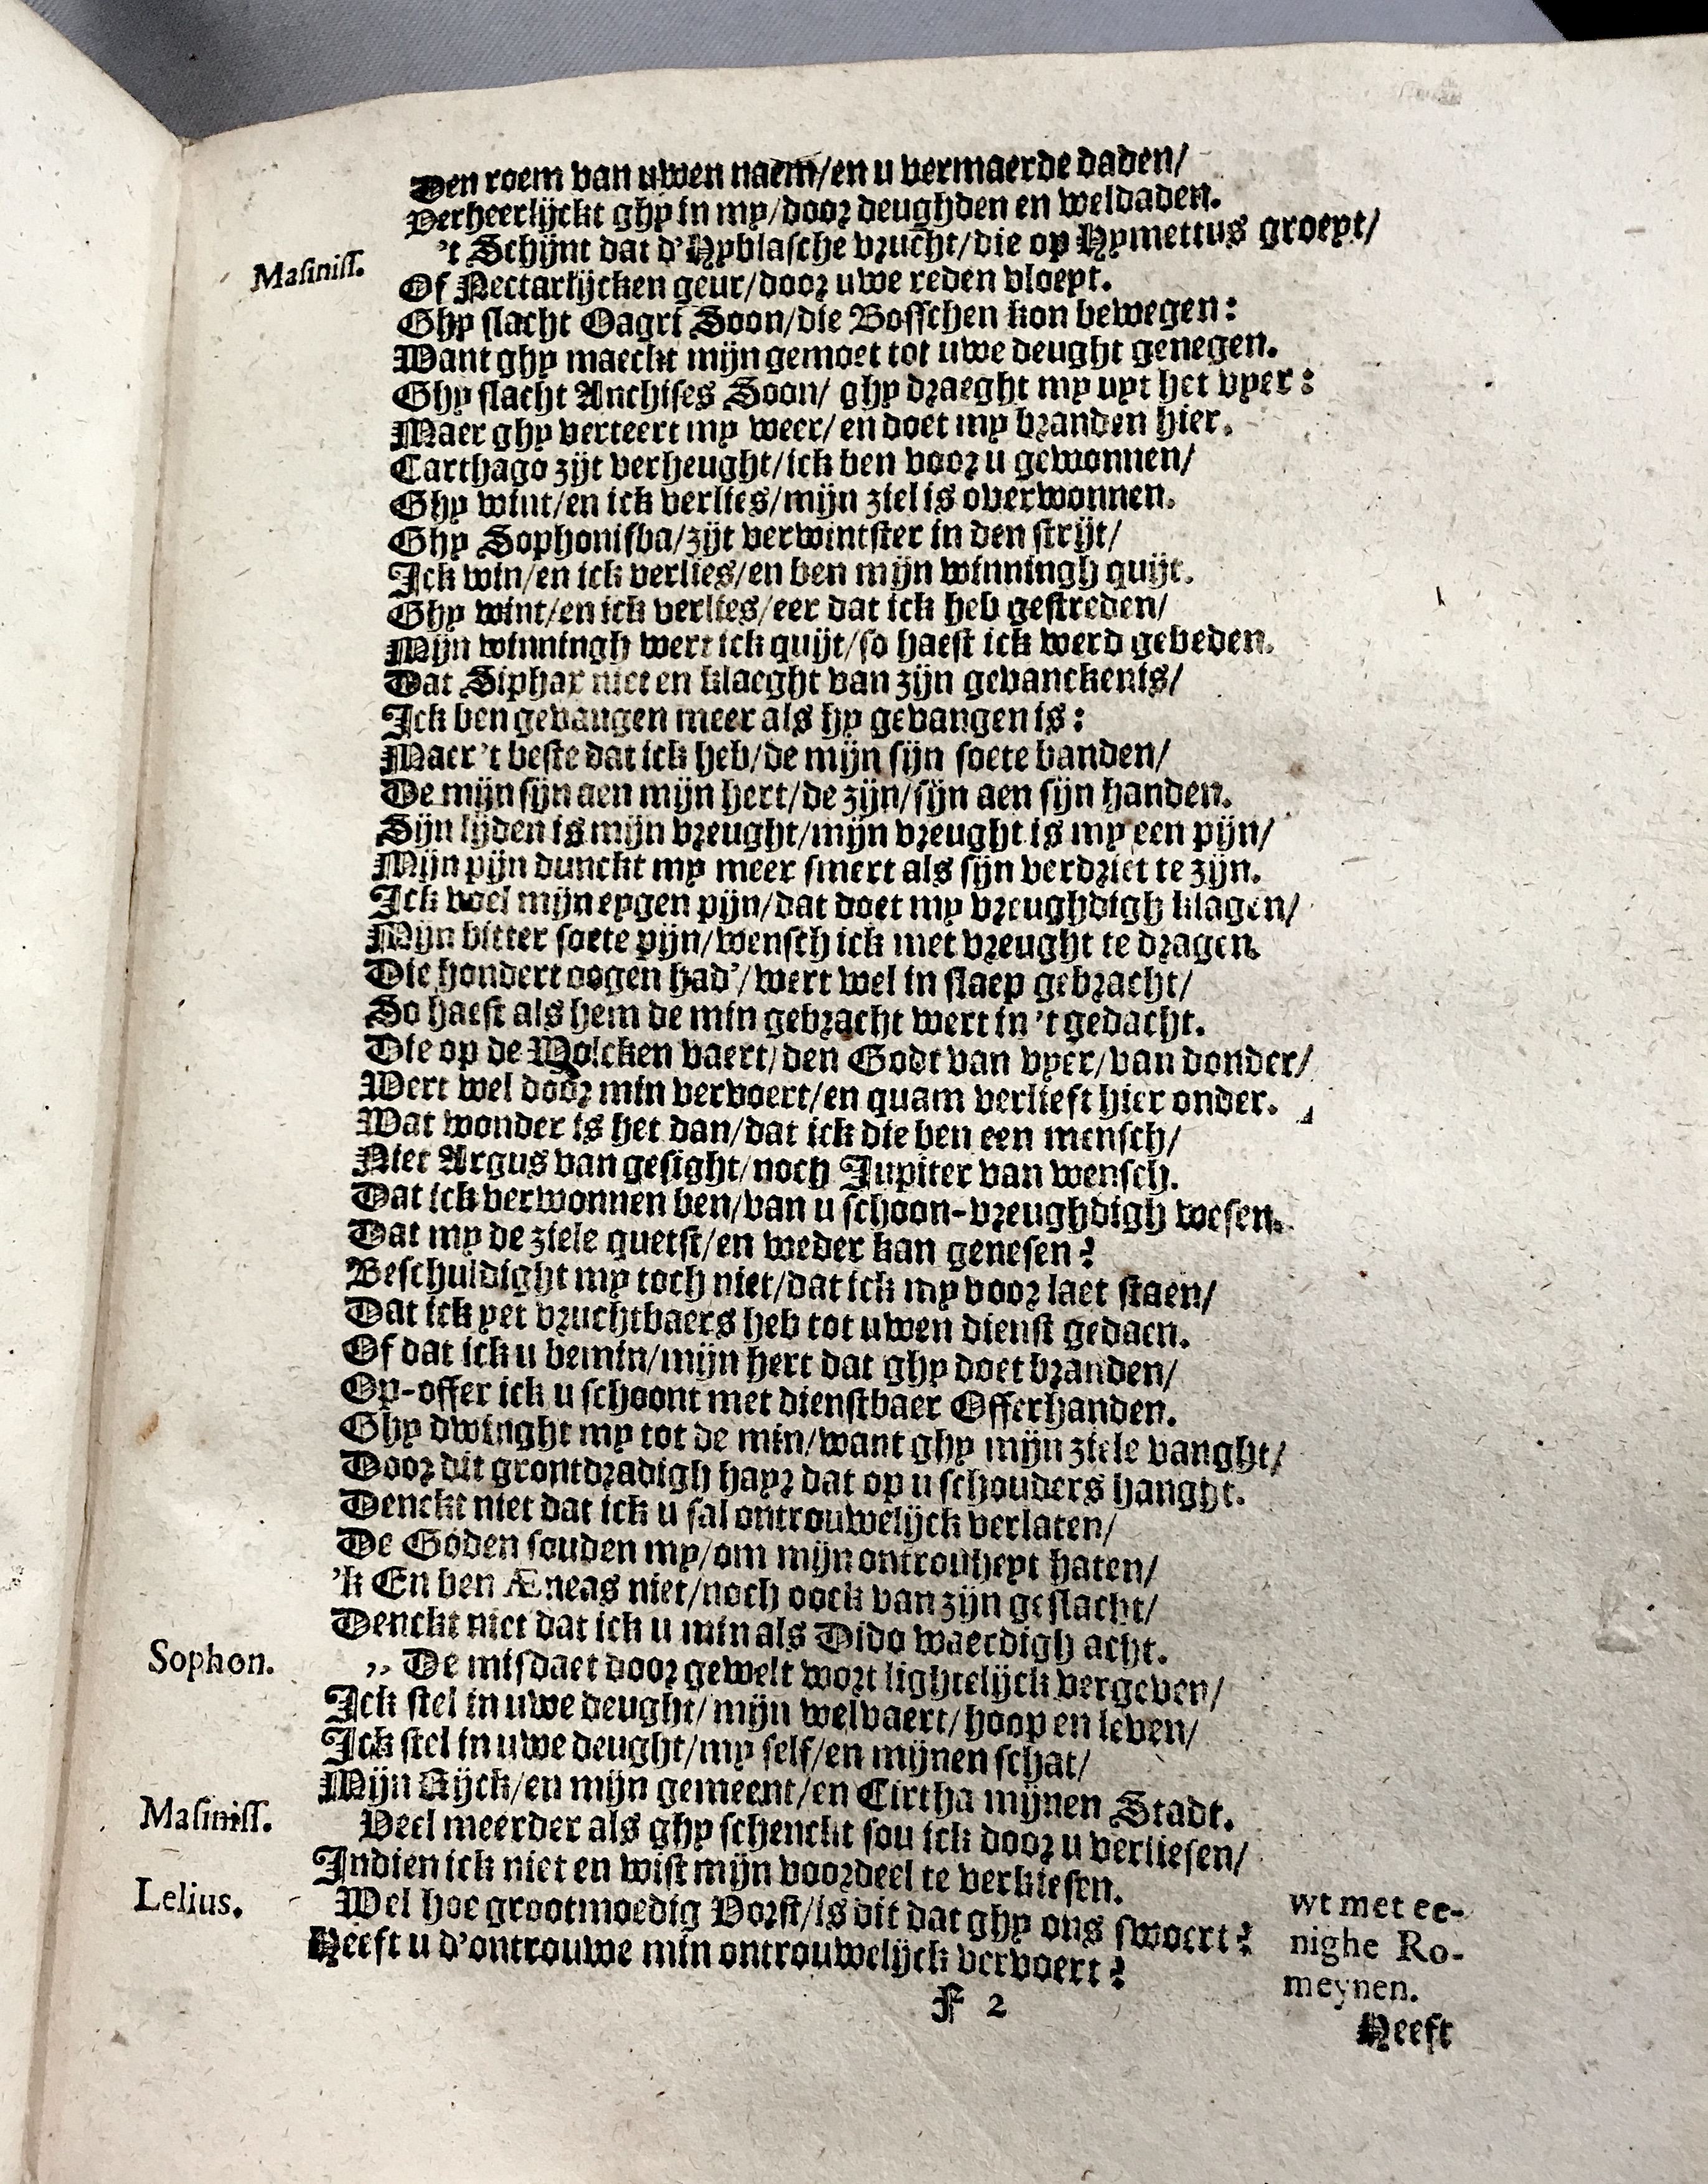 Den roem van uwen naem/en u vermaerde daden/
Verheerlijckt ghy in my/door deughden en weldaden.
Masiniss. 't Schijnt dat d'Hyblasche vrucht/die op Hymettus groeyt/
Of Nectarlijcken geur/door uwe reden vloeyt.
Ghy slacht Oagri Soon/die Bosschen kon bewegen:
Want ghy maeckt mijn gemoet tot uwe deught genegen.
Ghy slacht Anchises Soon/ ghy draeght my uyt het vyer:
Maer ghy verteert my weer/ en doet my branden hier.
Carthago zijt verheught/ick ben voor u gewonnen/
Ghy wint/en ick verlies/mijn ziel is overwonnen.
Ghy Sophonisba/zijt verwintster in den strijt/
Ick win/en ick verlies/en ben mijn winningh quijt.
Ghy wint/en ick verlies/eer dat ick heb gestreden/
Mijn winningh wert ick quijt/so haest ick werd gebeden.
Dat Siphax niet en klaeght van zijn gevanckenis/
Ick ben gevangen meer als hy gevangen is:
Maer 't beste dat ick heb/de mijn sijn soete banden/
De mijn sijn aen mijn hert/de zijn/sijn aen sijn handen.
Sijn lijden is mijn vreught/mijn vreught is my een pijn/
Mijn pijn dunckt my meer smert als sijn verdriet te zijn.
Ick voel mijn eygen pijn/dat doet my vreughdigh klagen/
Mijn bitter soete pijn/wensch ick met vreught te dragen.
Die hondert oogen had'/wert wel in slaep gebracht/
So haest als hem de min gebracht wert in 't gedacht.
Die op de Wolcken vaert/den Godt van vyer/van donder/
Wert wel door min vervoert/en quam verlieft hier onder.
Wat wonder is het dan/dat ick die ben een mensch/
Niet Argus van gesight/noch Jupiter van wensch.
Dat ick verwonnen ben/van u schoon-vreughdigh wesen.
Dat my de ziele quetst/en weder kan genesen?
Beschuldight my toch niet/dat ick my voor laet staen/
Dat ick yet vruchtbaers heb tot uwen dienst gedaen.
Of dat ick u bemin/mijn hert dat ghy doet branden/
Op-offer ick u schoont met dienstbaer Offerhanden.
Ghy dwinght my tot de min/want ghy mijn ziele vanght/
Door dit grontdradigh hayr dat op u schouders hanght.
Denckt niet dat ick u sal ontrouwelijck verlaten/
De Goden souden my/om mijn ontrouheyt haten/
'k En ben Æneas niet/noch oock van zijn geslacht/
Denckt niet dat ick u min als Dido waerdigh acht.
Sophon. ,, De misdaet door gewelt wort lightelijck vergeven/
Ick stel in uwe deught/mijn welvaert/hoop en leven/
Ick stel in uwe deught/my self/en mijnen schat/
Mijn Rijck/en mijn gemeent/en Cirtha mijnen Stadt.
Masiniss. Veel meerder als ghy schenckt sou ick door u verliesen/
Indien ick niet en wist mijn voordeel te verkiesen.
Lelius. Wel hoe grootmoedig Vorst/is dit dat ghy ons swoert? wt met ee-
Heeft u d'ontrouwe min ontrouwelijck vervoert? nighe Ro-
meynen.
F 2
Heeft